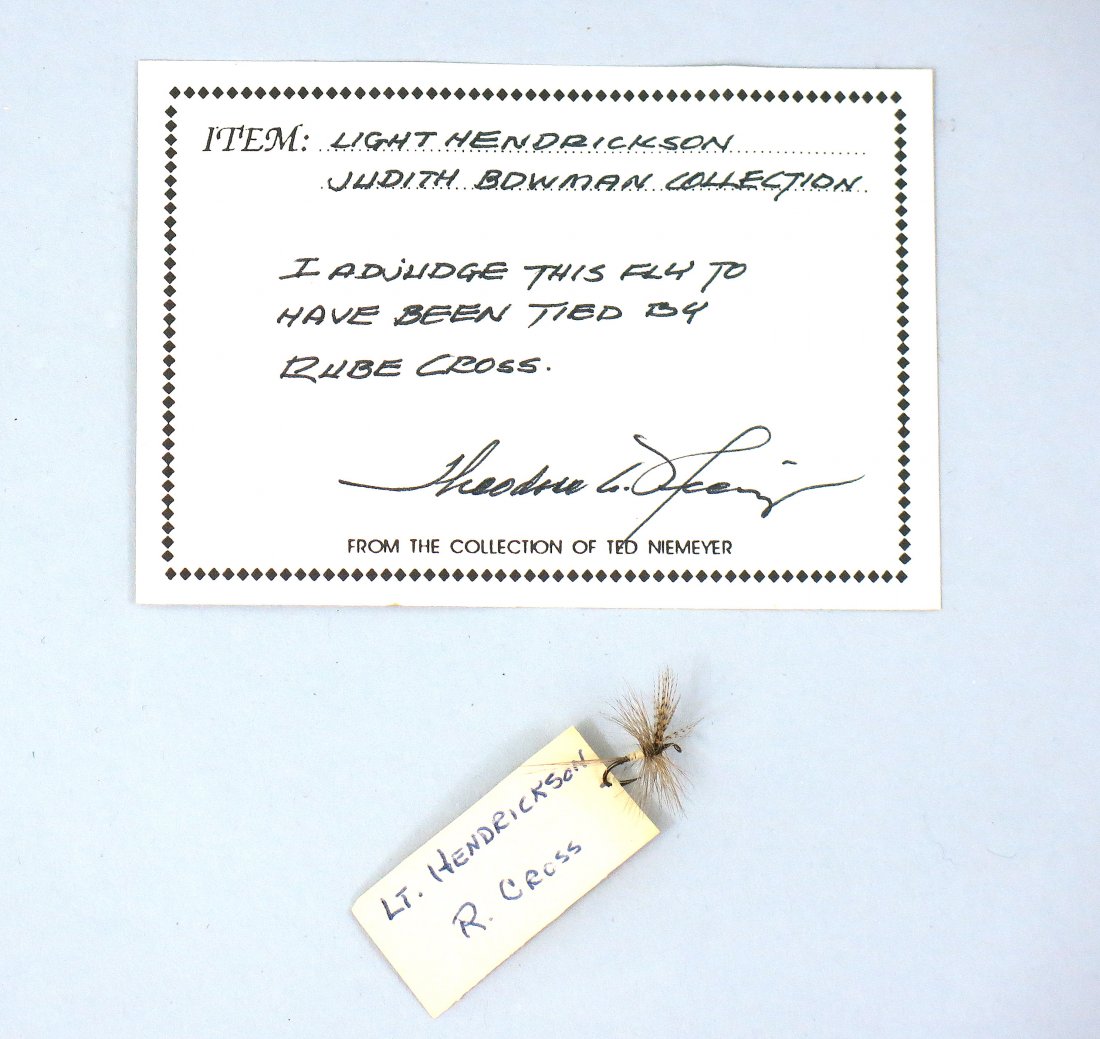 ITEM: LIGHT HENDRICKSON
JUDITH BOWMAN COLLECTION
I ADJUDGE THIS FLY TO
HAVE BEEN TIED BY
RUBE CROSS.
Theodore
FROM THE COLLECTION OF TED NIEMEYER
LT. HENDRICKSON
R. CROSS